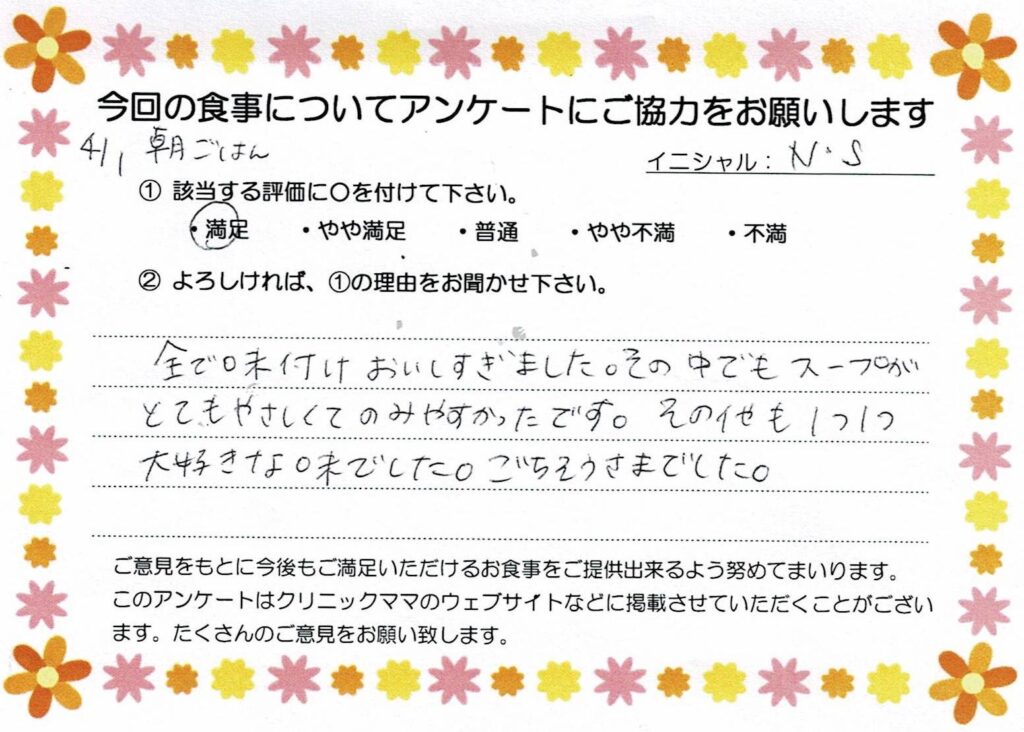 今回の食事についてアンケートにご協力をお願いします
4/1 朝ごはん
イニシャル： N・S
① 該当する評価に〇を付けて下さい。
・満足 ・やや満足 ・普通 ・やや不満 ・不満
② よろしければ、①の理由をお聞かせ下さい。
全て味付けおいしすぎました。その中でもスープが
とてもやさしくてのみやすかったです。その他も1つ1つ
大好きな味でした。ごちそうさまでした。
ご意見をもとに今後もご満足いただけるお食事をご提供出来るよう努めてまいります。
このアンケートはクリニックママのウェブサイトなどに掲載させていただくことがござい
ます。たくさんのご意見をお願い致します。